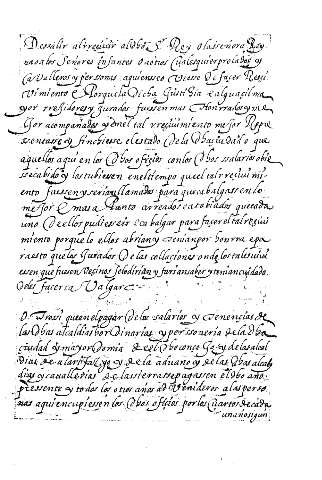 De salir al rrecivir al dho Sr. Rey o la señora Rey
na o a los Señores infantes o a otros cualesquier prelados y
Cavalleros y personas a quien se o viesse De facer Resci
vimiento E Por que la Dicha Justicia e alguaçil ma
yor rregidores y jurados fuessen mas Honrrados y me
Jor acompañados y en el tal rrecivimiento mejor Repre
sentasse y finchiese el estado De la Dha çiudad o que
aquellos a quien los Dhos ofiçios con los Dhos salarios obie
sse cabido y los tubiesen en el tiempo que el tal rrecivimi
ento fuessen y serian llamados para que cabalgassen lo
mejor E mas a Punto arreados e ataviados que cada
uno De ellos pudiesse ir e cabalgar para facer el tal reçivi
miento por que lo ellos abrian y ternian por honrra e pa
ra esto que los Jurados De las collaçiones onde los tales vivi
essen que fuesen Vezinos se lo dirian y farian saber y ternian cuidado
De los facer cavalgar
O Trosi que en el pagar De los salarios y tenencias de
las Dhas alcaldias hordinarias y personeria de la Dha
çiudad y mayordomia de el Dho conçejo y de las alcal
dias de alarifadgo y de la aduana y de las Dhas alcal
dias y cavallerias de las sierras se pagassen el dho año
pressente y todos los otros años ad Venideros a las perso
nas a quien cupiessen los Dhos ofiçios por los quartos de cada
un año sigun